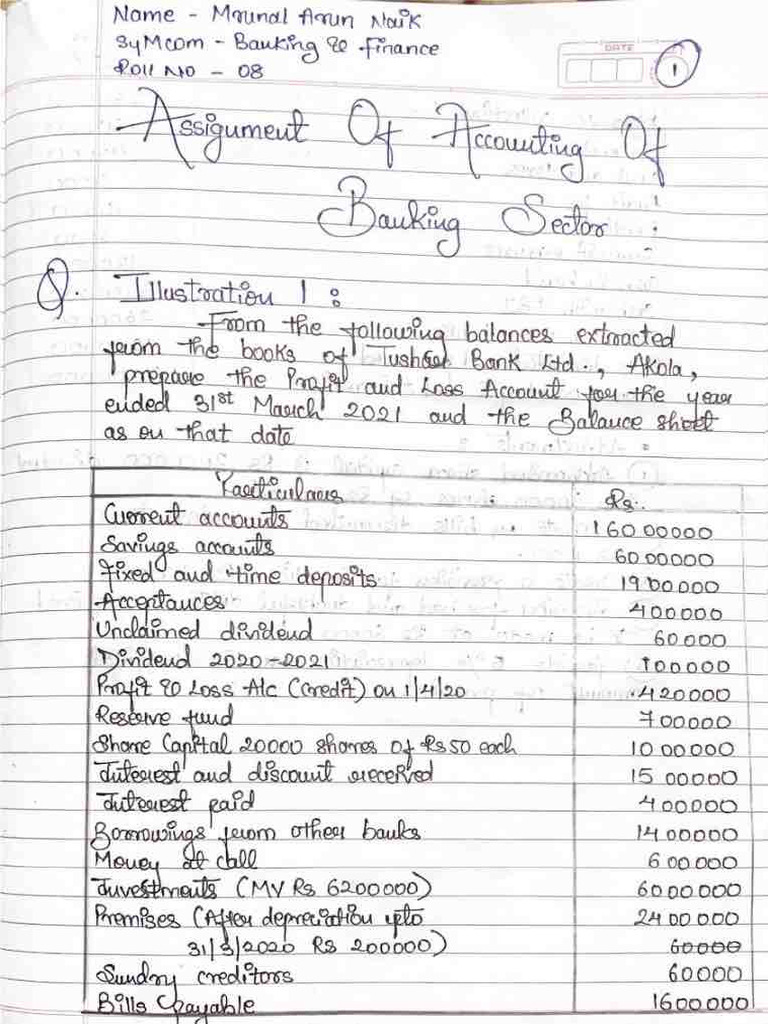 Name - Mrunal Arun Naik
SyMcom - Banking & Finance
Roll No - 08
DATE
1
Assignment Of Accounting Of
Banking Sector :
Q. Illustration 1 :
From the following balances extracted
from the books of Tushar Bank Ltd., Akola,
prepare the Profit and Loss Account for the year
ended 31st March 2021 and the Balance sheet
as on that date
Particulars Rs.
Current accounts 16000000
Savings accounts 6000000
Fixed and time deposits 1900000
Acceptances 400000
Unclaimed dividend 60000
Dividend 2020-2021 100000
Profit & Loss A/c (Credit) on 1/4/20 420000
Reserve fund 700000
Share Capital 20000 shares of Rs 50 each 1000000
Interest and discount received 1500000
Interest paid 400000
Borrowings from other banks 1400000
Money at call 600000
Investments (MV Rs 6200000) 6000000
Premises (After depreciation upto 2400000
31/3/2020 Rs 200000) 60000
Sundry creditors 60000
Bills Payable 1600000